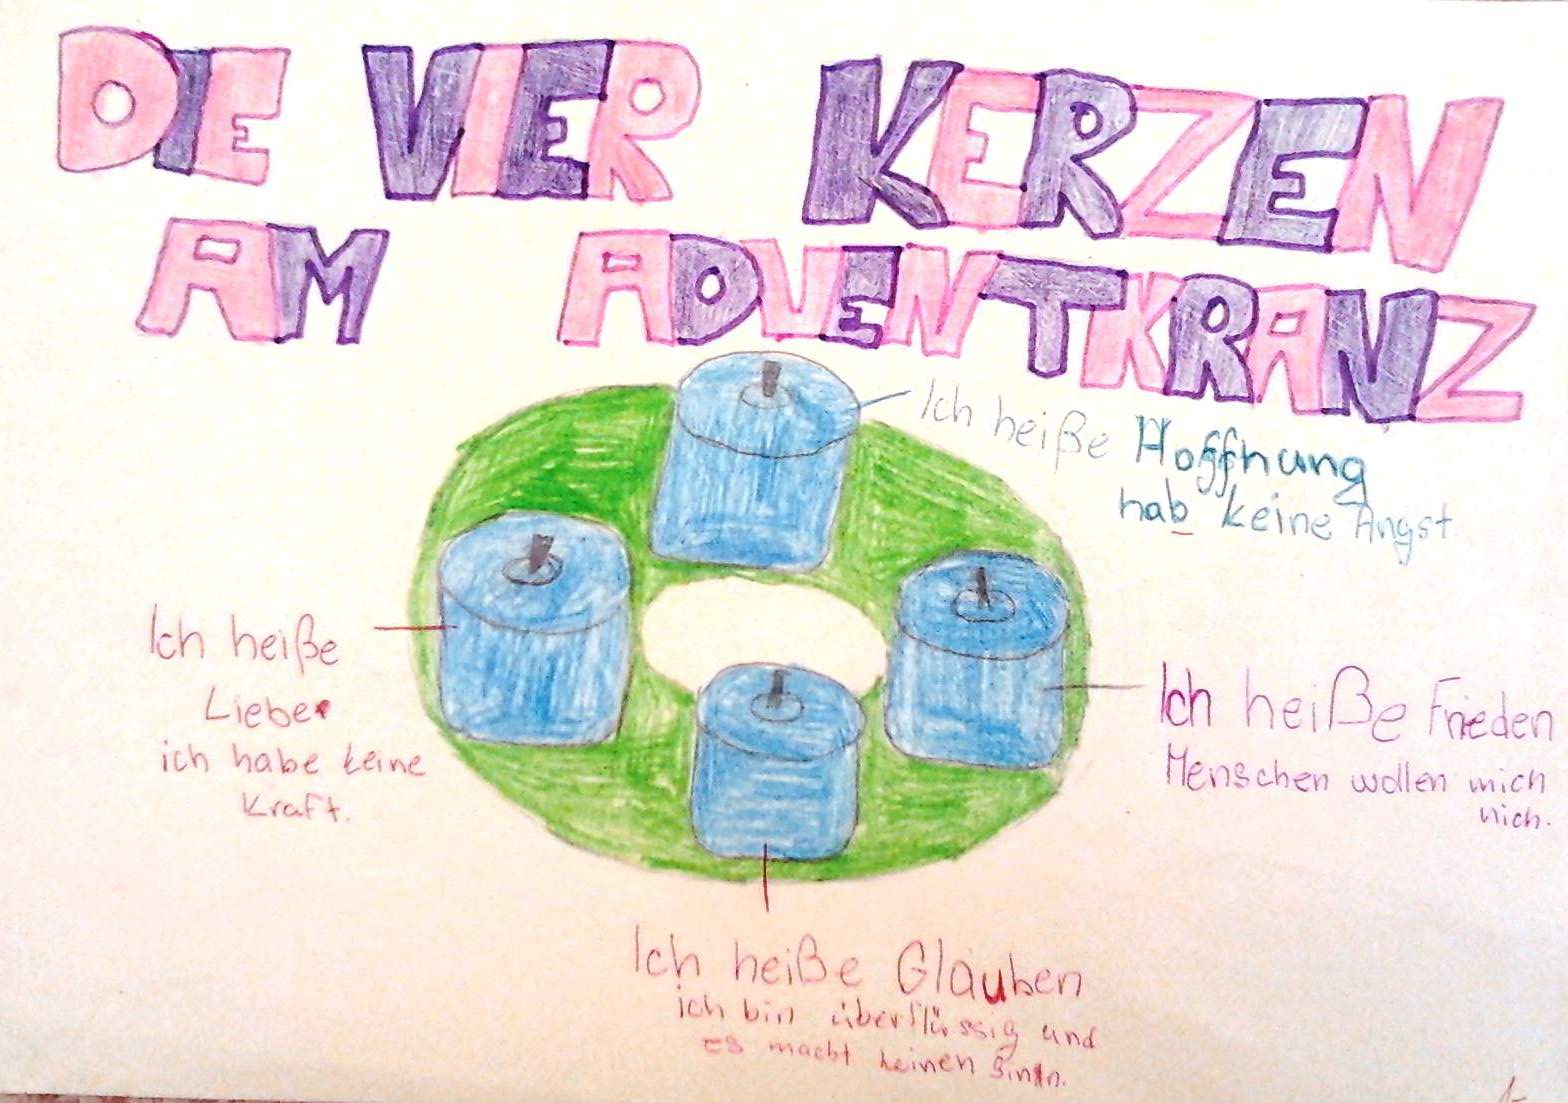 DIE VIER KERZEN
AM ADVENTKRANZ
Ich heiße Hoffnung
hab keine Angst
Ich heiße
Liebe
ich habe keine
Kraft.
Ich heiße Frieden
Menschen wollen mich
nich.
Ich heiße Glauben
ich bin überflüssig und
es macht keinen Sinn.